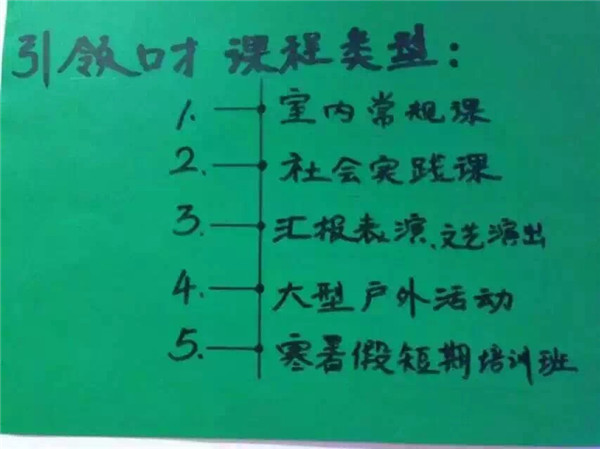 引领口才 课程类型:
1. 室内常规课
2. 社会实践课
3. 汇报表演、文艺演出
4. 大型户外活动
5. 寒暑假短期培训班